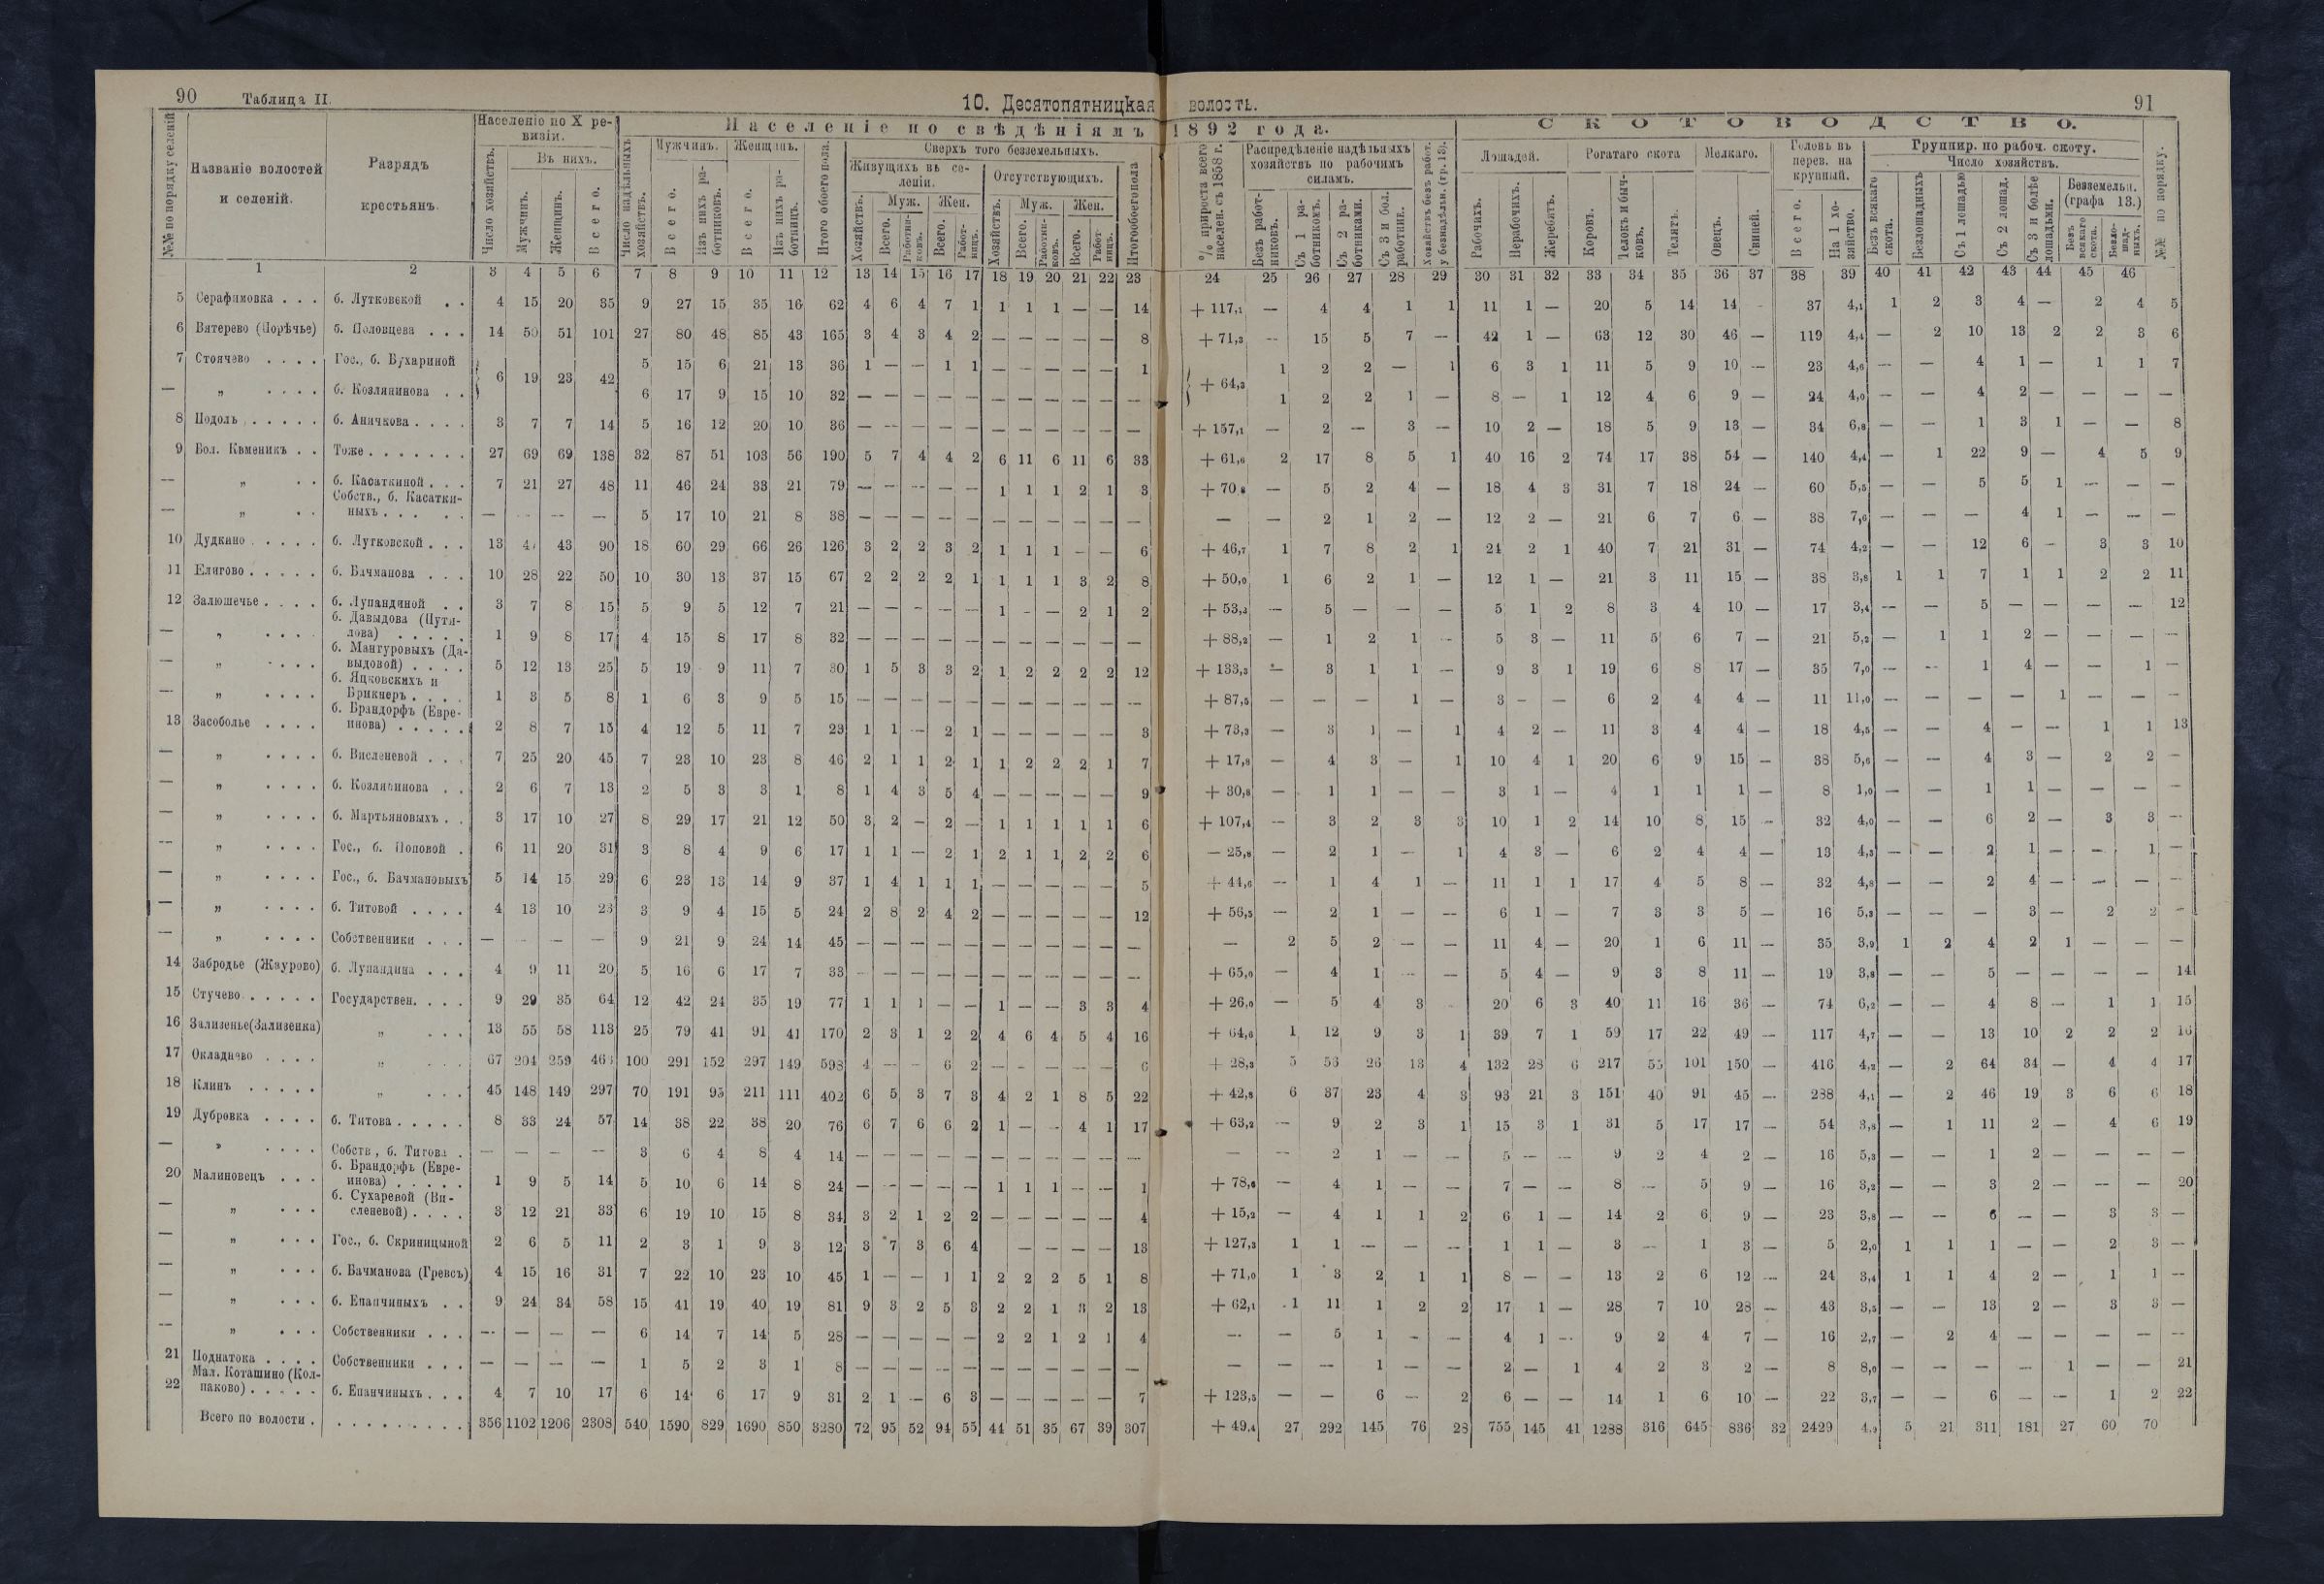 90 Таблица II.
10. Десятопятницкая волость.
91
№№ по порядку селеній
Названіе волостей и селеній.
Разрядъ крестьянъ.
Населеніе по X ревизіи.
Число хозяйствъ.
Въ нихъ.
Мужчинъ.
Женщинъ.
Всего.
Населеніе по свѣдѣніямъ 1892 года.
Число надѣльныхъ хозяйствъ.
Мужчинъ.
Всего.
Изъ нихъ работниковъ.
Женщинъ.
Всего.
Изъ нихъ работницъ.
Итого обоего пола.
Сверхъ того безземельныхъ.
Живущихъ въ селеніи.
Хозяйствъ.
Муж.
Всего.
Работниковъ.
Жен.
Всего.
Работницъ.
Отсутствующихъ.
Хозяйствъ.
Муж.
Всего.
Работниковъ.
Жен.
Всего.
Работницъ.
Итого обоего пола
% прироста всего населен. съ 1858 г.
Распредѣленіе надѣльныхъ хозяйствъ по рабочимъ силамъ.
Безъ работниковъ.
Съ 1 работникомъ.
Съ 2 работниками.
Съ 3 и бол. работник.
Хозяйствъ безъ работ. у безнадѣльн. (гр. 13).
СКОТОВОДСТВО.
Лошадей.
Рабочихъ.
Нерабочихъ.
Жеребятъ.
Рогатаго скота
Коровъ.
Телокъ и бычковъ.
Телятъ.
Мелкаго.
Овецъ.
Свиней.
Головъ въ перев. на крупный.
Всего.
На 1 хозяйство.
Группир. по рабоч. скоту.
Число хозяйствъ.
Безъ всякаго скота.
Безлошадныхъ
Съ 1 лошадью
Съ 2 лошад.
Съ 3 и болѣе лошадьми.
Безземельн. (графа 13.)
Безъ всякаго скота.
Безлошадныхъ.
№№ по порядку.
1 2 3 4 5 6 7 8 9 10 11 12 13 14 15 16 17 18 19 20 21 22 23 24 25 26 27 28 29 30 31 32 33 34 35 36 37 38 39 40 41 42 43 44 45 46
5 Серафимовка . . . б. Лутковской . . 4 15 20 35 9 27 15 35 16 62 4 6 4 7 1 1 1 1 — — 14 + 117,1 — 4 4 1 1 11 1 — 20 5 14 14 37 4,1 1 2 3 4 — 2 4 5
6 Вятерево (Порѣчье) б. Половцева . . . 14 50 51 101 27 80 48 85 43 165 3 4 3 4 2 — — — — — 8 + 71,3 — 15 5 7 — 42 1 — 63 12 30 46 — 119 4,4 — 2 10 13 2 2 3 6
7 Стоячево . . . . Гос., б. Бухариной 6 19 23 42 5 15 6 21 13 36 1 — — 1 1 — — — — — 1 + 64,3 1 2 2 — 1 6 3 1 11 5 9 10 — 23 4,6 — — 4 1 — 1 1 7
— „ . . . . б. Козлянинова . . 6 17 9 15 10 32 — — — — — — — — — — — 1 2 2 1 — 8 — 1 12 4 6 9 — 24 4,0 — — 4 2 — — — —
8 Подоль . . . . . б. Аничкова . . . . 3 7 7 14 5 16 12 20 10 36 — — — — — — — — — — — + 157,1 — 2 — 3 — 10 2 — 18 5 9 13 — 34 6,8 — — 1 3 1 — — 8
9 Бол. Каменикъ . . Тоже . . . . . . . 27 69 69 138 32 87 51 103 56 190 5 7 4 4 2 6 11 6 11 6 33 + 61,6 2 17 8 5 1 40 16 2 74 17 38 54 — 140 4,4 — 1 22 9 — 4 5 9
— „ . . б. Касаткиной . . . 7 21 27 48 11 46 24 33 21 79 — — — — — 1 1 1 2 1 3 + 70,8 — 5 2 4 — 18 4 3 31 7 18 24 — 60 5,5 — — 5 5 1 — — —
— „ . . Собств., б. Касаткиныхъ . . . — — — — 5 17 10 21 8 38 — — — — — — — — — — — — — 2 1 2 — 12 2 — 21 6 7 6 — 38 7,6 — — — 4 1 — — —
10 Дудкино . . . . . б. Лутковской . . . 13 47 43 90 18 60 29 66 26 126 3 2 2 3 2 1 1 1 — — 6 + 46,7 1 7 8 2 1 24 2 1 40 7 21 31 — 74 4,2 — — 12 6 — 3 3 10
11 Елигово . . . . . б. Бачманова . . . 10 28 22 50 10 30 13 37 15 67 2 2 2 2 1 1 1 1 3 2 8 + 50,0 1 6 2 1 — 12 1 — 21 3 11 15 — 38 3,8 1 1 7 1 1 2 2 11
12 Залющечье . . . . б. Лупандиной . . 3 7 8 15 5 9 5 12 7 21 — — — — — 1 — — 2 1 2 + 53,3 — 5 — — — 5 1 2 8 3 4 10 — 17 3,4 — — 5 — — — — 12
— „ . . . . б. Давыдова (Путилова) . . . . . 1 9 8 17 4 15 8 17 8 32 — — — — — — — — — — — + 88,2 — 1 2 1 — 5 3 — 11 5 6 7 — 21 5,2 — 1 1 2 — — — —
— „ . . . . б. Мангуровыхъ (Давыдовой) . . . . 5 12 13 25 5 19 9 11 7 30 1 5 3 3 2 1 2 2 2 2 12 + 133,3 — 3 1 1 — 9 3 1 19 6 8 17 — 35 7,0 — — 1 4 — — 1 —
— „ . . . . б. Яцковскихъ и Брикнеръ . . . . 1 3 5 8 1 6 3 9 5 15 — — — — — — — — — — — + 87,5 — — — 1 — 3 — — 6 2 4 4 — 11 11,0 — — — — 1 — — —
13 Засоболье . . . . б. Брандорфъ (Евреинова) . . . . . 2 8 7 15 4 12 5 11 7 23 1 1 — 2 1 — — — — — 3 + 73,3 — 3 1 — 1 4 2 — 11 3 4 4 — 18 4,5 — — 4 — — 1 1 13
— „ . . . . б. Висленевой . . . 7 25 20 45 7 23 10 23 8 46 2 1 1 2 1 1 2 2 2 1 7 + 17,8 — 4 3 — 1 10 4 1 20 6 9 15 — 38 5,6 — — 4 3 — 2 2 —
— „ . . . . б. Козлянинова . . 2 6 7 13 2 5 3 3 1 8 1 4 3 5 4 — — — — — 9 + 30,8 — 1 1 — — 3 1 — 4 1 1 1 — 8 1,0 — — 1 1 — — — —
— „ . . . . б. Мартьяновыхъ . . 3 17 10 27 8 29 17 21 12 50 3 2 — 2 — 1 1 1 1 1 6 + 107,4 — 3 2 3 3 10 1 2 14 10 8 15 — 32 4,0 — — 6 2 — 3 3 —
— „ . . . . Гос., б. Поповой . 6 11 20 31 3 8 4 9 6 17 1 1 — 2 1 2 1 1 2 2 6 — 25,8 — 2 1 — 1 4 3 — 6 2 4 4 — 13 4,3 — — 2 1 — — 1 —
— „ . . . . Гос., б. Бачмановыхъ 5 14 15 29 6 23 13 14 9 37 1 4 1 1 1 — — — — — 5 + 44,6 — 1 4 1 — 11 1 1 17 4 5 8 — 32 4,8 — — 2 4 — — — —
— „ . . . . б. Титовой . . . . 4 13 10 23 3 9 4 15 5 24 2 8 2 4 2 — — — — — 12 + 56,5 — 2 1 — — 6 1 — 7 3 3 5 — 16 5,3 — — — 3 — 2 2 —
— „ . . . . Собственники . . . — — — — 9 21 9 24 14 45 — — — — — — — — — — — — 2 5 2 — — 11 4 — 20 1 6 11 — 35 3,9 1 2 4 2 1 — — —
14 Забродье (Жаурово) б. Лупандина . . . 4 9 11 20 5 16 6 17 7 33 — — — — — — — — — — — + 65,0 — 4 1 — — 5 4 — 9 3 8 11 — 19 3,8 — — 5 — — — — 14
15 Стучево . . . . . Государствен. . . . 9 29 35 64 12 42 24 35 19 77 1 1 1 — — 1 — — 3 3 4 + 26,0 — 5 4 3 20 6 3 40 11 16 36 — 74 6,2 — — 4 8 — 1 1 15
16 Зализенье(Зализенка) „ . . . 13 55 58 113 25 79 41 91 41 170 2 3 1 2 2 4 6 4 5 4 16 + 64,6 1 12 9 3 1 39 7 1 59 17 22 49 — 117 4,7 — — 13 10 2 2 2 16
17 Окладнево . . . . „ . . . 67 204 259 463 100 291 152 297 149 598 4 — — 6 2 — — — — — 6 + 28,3 5 56 26 13 4 132 28 6 217 55 101 150 — 416 4,2 — 2 64 34 — 4 4 17
18 Клинъ . . . . . „ . . . 45 148 149 297 70 191 95 211 111 402 6 5 3 7 3 4 2 1 8 5 22 + 42,8 6 37 23 4 3 93 21 3 151 40 91 45 — 288 4,1 — 2 46 19 3 6 6 18
19 Дубровка . . . . б. Титова . . . . . 8 33 24 57 14 38 22 38 20 76 6 7 6 6 2 1 — — 4 1 17 + 63,2 — 9 2 3 1 15 3 1 31 5 17 17 — 54 3,8 — 1 11 2 — 4 6 19
— „ . . . . Собств., б. Титова . — — — — 3 6 4 8 4 14 — — — — — — — — — — — — — 2 1 — — 5 — — 9 2 4 2 — 16 5,3 — — 1 2 — — — —
20 Малиновецъ . . . б. Брандорфъ (Евреинова) . . . . . 1 9 5 14 5 10 6 14 8 24 — — — — — 1 1 1 — — 1 + 78,6 — 4 1 — — 7 — — 8 — 5 9 — 16 3,2 — — 3 2 — — — 20
— „ . . . б. Сухаревой (Висленевой) . . . . 3 12 21 33 6 19 10 15 8 34 3 2 1 2 2 — — — — — 4 + 15,2 — 4 1 1 2 6 1 — 14 2 6 9 — 23 3,8 — — 6 — — 3 3 —
— „ . . . Гос., б. Скриницыной 2 6 5 11 2 3 1 9 3 12 3 7 3 6 4 — — — — 13 + 127,3 1 1 — — — 1 1 — 3 — 1 3 — 5 2,0 1 1 1 — — 2 3 —
— „ . . . б. Бачманова (Гревсъ) 4 15 16 31 7 22 10 23 10 45 1 — — 1 1 2 2 2 5 1 8 + 71,0 1 3 2 1 1 8 — — 13 2 6 12 — 24 3,4 1 1 4 2 — 1 1 —
— „ . . . б. Епанчиныхъ . . 9 24 34 58 15 41 19 40 19 81 9 3 2 5 3 2 2 1 3 2 13 + 62,1 1 11 1 2 2 17 1 — 28 7 10 28 — 43 3,5 — — 13 2 — 3 3 —
— „ . . . Собственники . . . — — — — 6 14 7 14 5 28 — — — — — 2 2 1 2 1 4 — — 5 1 — — 4 1 — 9 2 4 7 — 16 2,7 — 2 4 — — — — —
21 Поднатока . . . . Собственники . . . — — — — 1 5 2 3 1 8 — — — — — — — — — — — — — — 1 — — 2 — 1 4 2 3 2 — 8 8,0 — — — — 1 — — 21
22 Мал. Коташино (Колпаково) . . . . . б. Епанчиныхъ . . . 4 7 10 17 6 14 6 17 9 31 2 1 — 6 3 — — — — — 7 + 123,5 — — 6 — 2 6 — — 14 1 6 10 — 22 3,7 — — 6 — — 1 2 22
Всего по волости . . . . . . . . . . 356 1102 1206 2308 540 1590 829 1690 850 3280 72 95 52 94 55 44 51 35 67 39 307 + 49,4 27 292 145 76 28 755 145 41 1288 316 645 836 32 2429 4,5 5 21 311 181 27 60 70